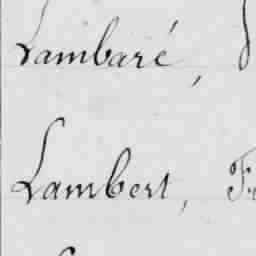 Lambaré,
Lambert,